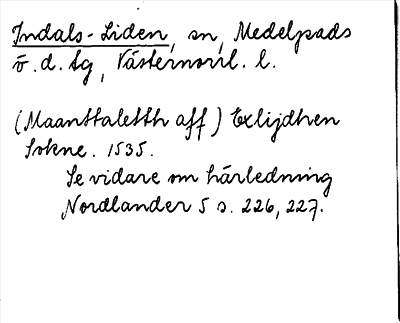 Indals-Liden, sn, Medelpads
ö. d. tg, Västernorrl. l.
(Maanttaletthh aff) Exlijdhen
Sokne. 1535.
Se vidare om härledning
Nordlander 5 s. 226, 227.